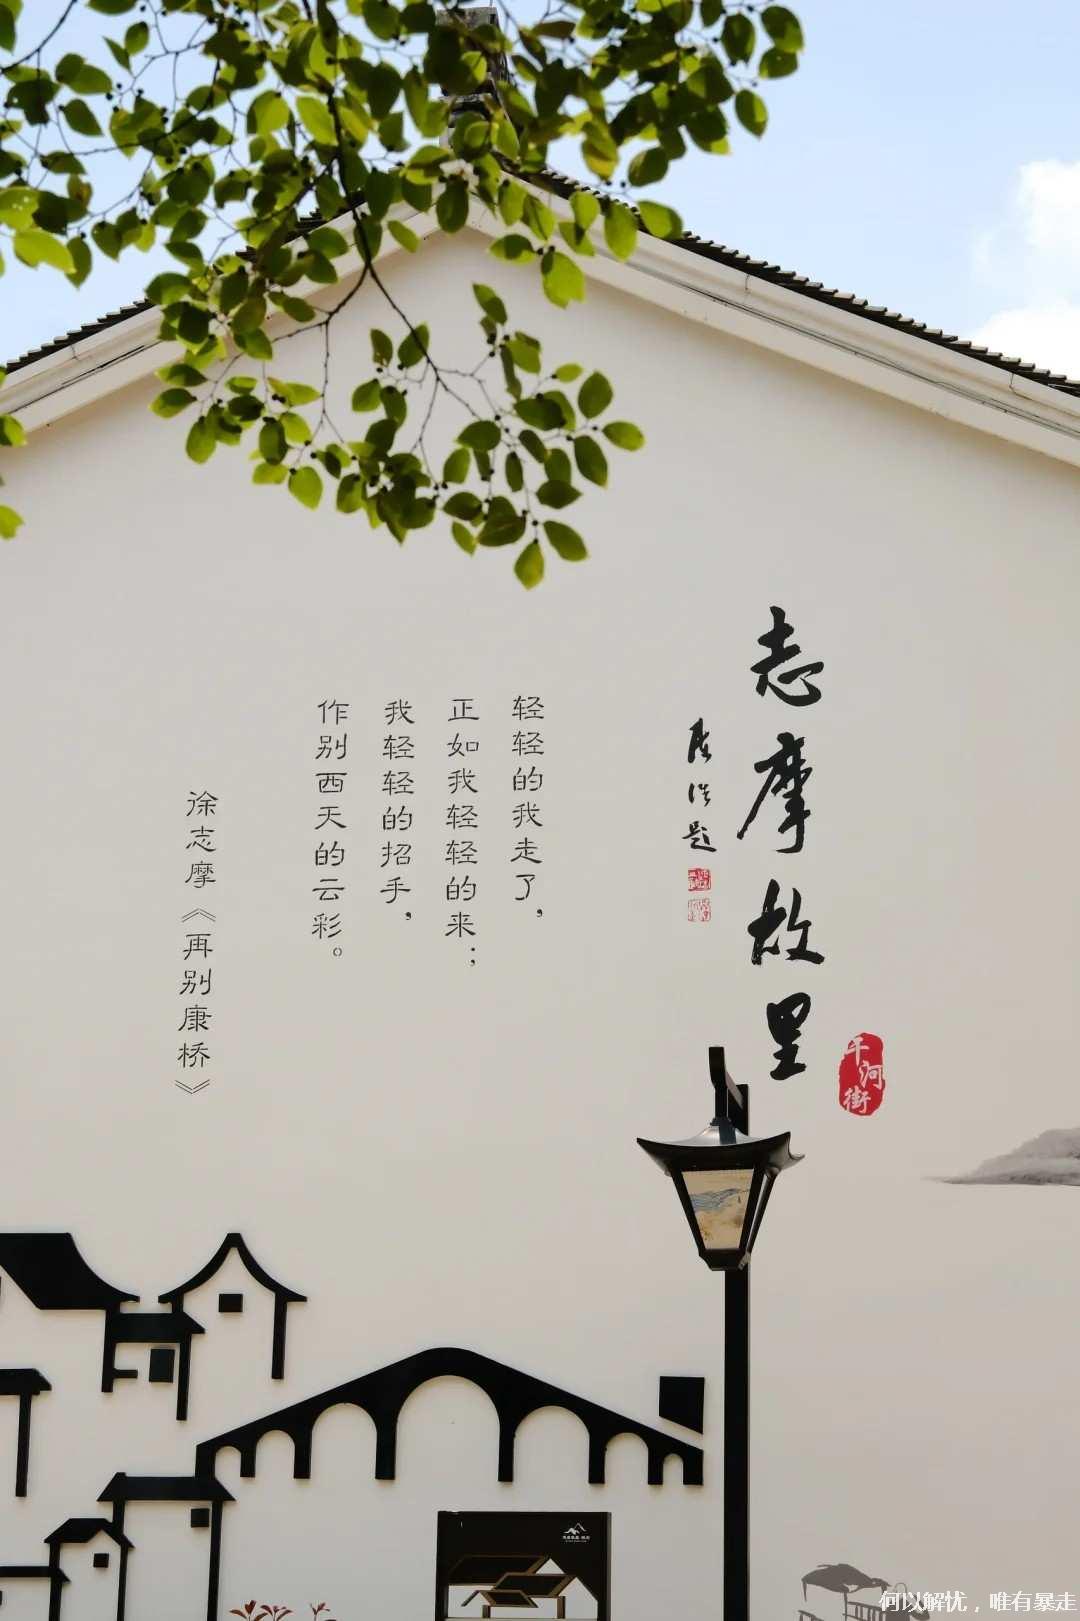 志摩故里
干河街
轻轻的我走了，
正如我轻轻的来；
我轻轻的招手，
作别西天的云彩。
徐志摩《再别康桥》
何以解忧，唯有暴走